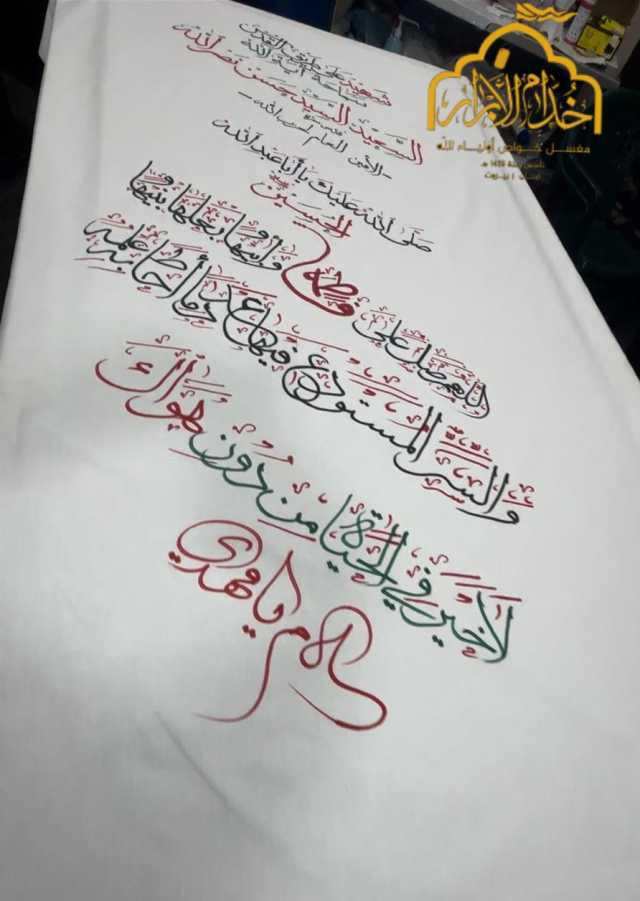 شهيد على طريق القدس
سماحة آية الله
السعيد السيد حسن نصرالله
- الأمين العام لحزب الله -
صلى الله عليك يا أبا عبد الله
الحسين
اللهم صل على فاطمة وأبيها وبعلها وبنيها
والسر المستودع فيها عدد ما أحاط به علمك
لا خير في الحياة من دون هواك
سلام يا مهدي
خدام الأبرار
مغسل خواص أولياء الله
تأسس سنة 1439 هـ
لبنان / بيروت